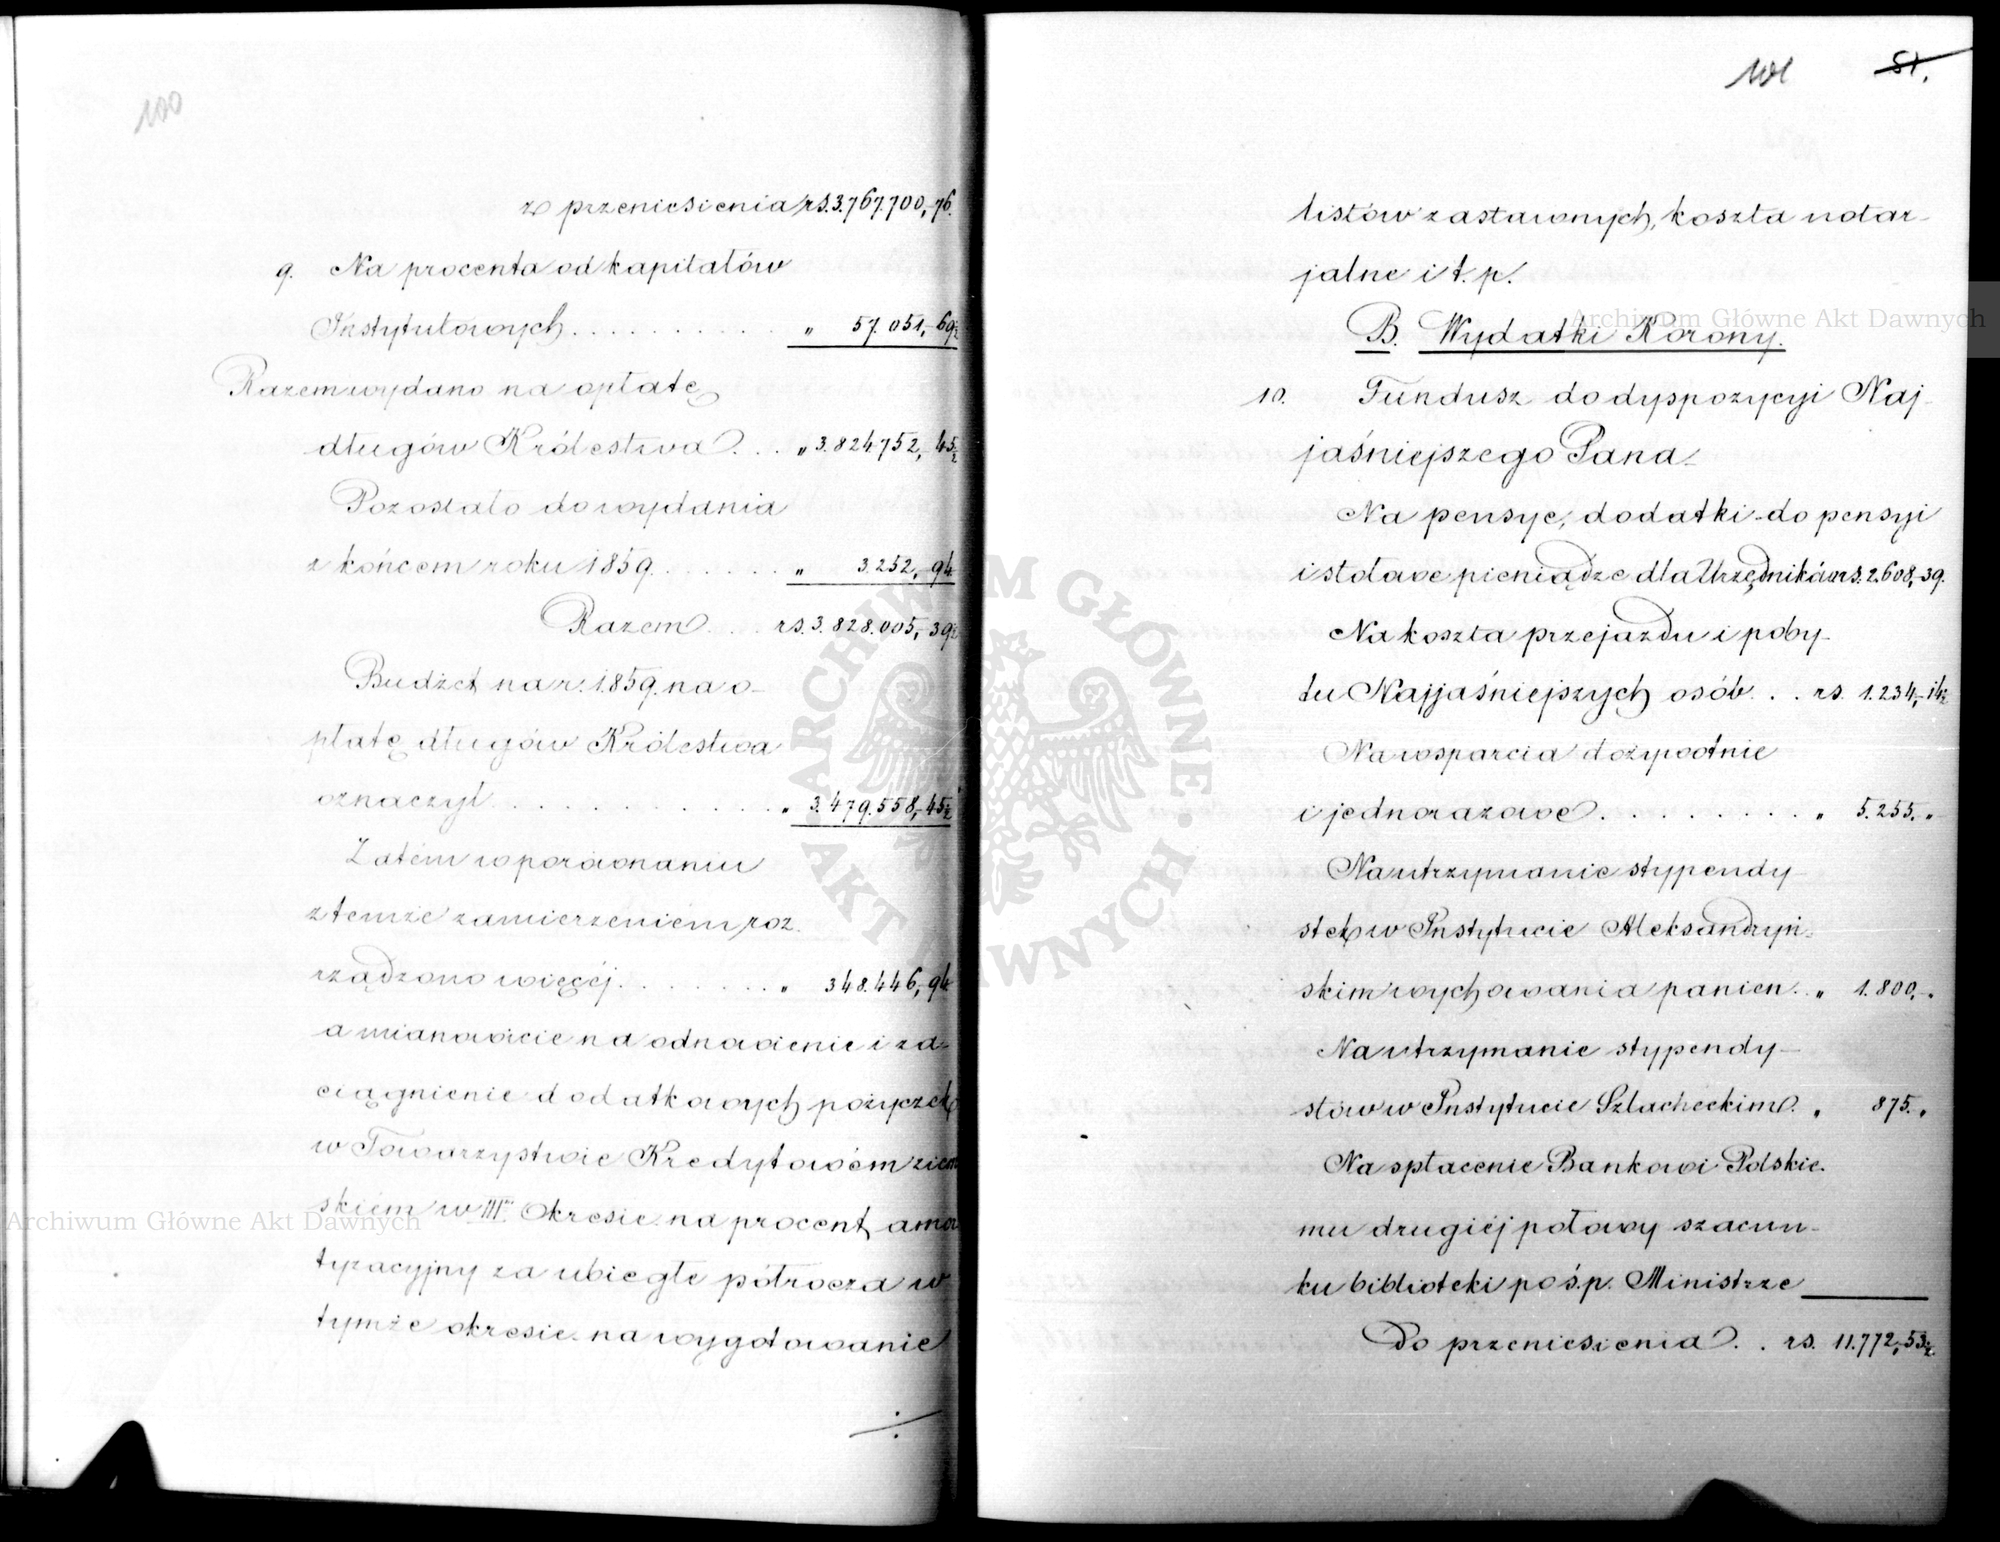 100
z przeniesienia rs. 3.767.700,-76.
9. Na procenta od kapitałów
Instytutowych . . . . . . . . . . „ 57.051,-69½
Razem wydano na opłatę
długów Królestwa . . . „ 3.824.752,-45½
Pozostało do wydania
z końcem roku 1859 . . . . . . „ 3.252,-94
Razem . . . rs. 3.828.005,-39½
Budżet na r. 1859. na o-
płatę długów Królestwa
oznaczył . . . . . . . . . . . „ 3.479.558,-45½
Zatém w porównaniu
z temże zamierzeniem roz-
rządzono więcéj . . . . . . . „ 348.446,-94
a mianowicie na odnowienie i za-
ciągnienie dodatkowych pożyczek
w Towarzystwie Kredytowém ziem
skiém w III. Okresie. na procent amor
tyzacyjny za ubiegłe półrocza w
tymże okresie. na wygotowanie
101 51.
listów zastawnych, koszta notar-
jalne i t. p.
B. Wydatki Korony.
10. Fundusz do dyspozycyi Naj-
jaśniejszego Pana
Na pensye, dodatki do pensyi
i stołowe pieniądze dla Urzędników rs. 2.608,-39.
Na koszta przejazdu i poby-
tu Najjaśniejszych osób . . rs. 1.234,-14½
Na wsparcia dożywotnie
i jednorazowe . . . . . . . . . „ 5.255. „
Na utrzymanie stypendy-
stek w Instytucie Aleksandryń-
skim wychowania panien . „ 1.800,- „
Na utrzymanie stypendy-
stów w Instytucie Szlacheckim . „ 875. „
Na spłacenie Bankowi Polskie-
mu drugiéj połowy szacun-
ku biblioteki po ś.p. Ministrze
Do przeniesienia . . rs. 11.772,-53½
Archiwum Główne Akt Dawnych
Archiwum Główne Akt Dawnych
ARCHIWUM GŁÓWNE · AKT DAWNYCH ·